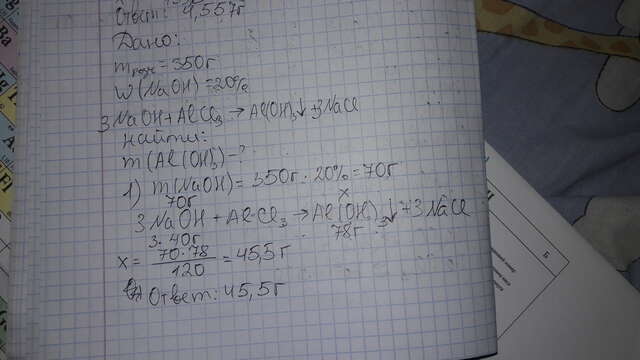 Ответ: 45,5г
Дано:
m р-ра = 350г
W(NaOH) = 20%
3NaOH + AlCl₃ → Al(OH)₃↓ + 3NaCl
Найти:
m(Al(OH)₃) - ?
1) m(NaOH) = 350г · 20% = 70г
70г x
3NaOH + AlCl₃ → Al(OH)₃↓ + 3NaCl
3·40г 78г
x = 70·78 / 120 = 45,5г
Ответ: 45,5г